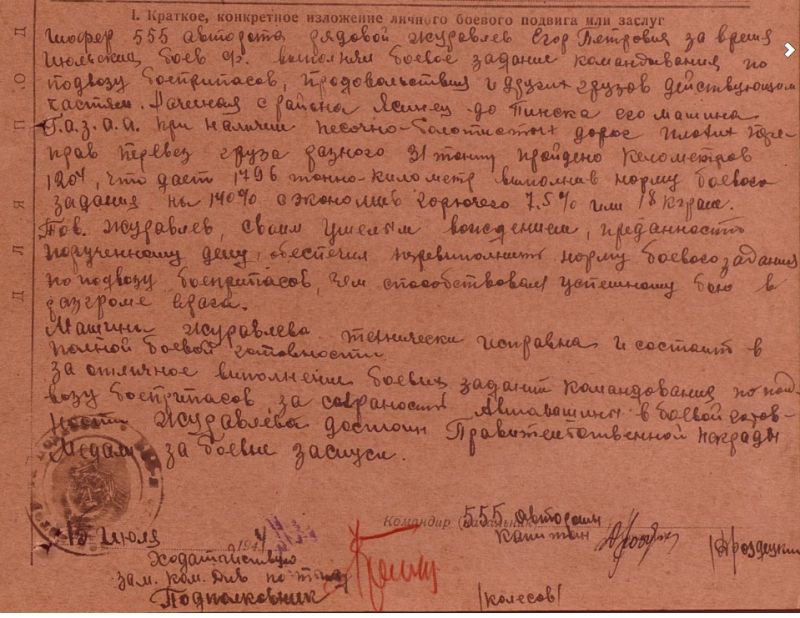 1. Краткое, конкретное изложение личного боевого подвига или заслуг
Шофер 555 автороты рядовой Журавлев Егор Петрович за время
Июльских боев выполнял боевое задание командования по
подвозу боеприпасов, продовольствия и других грузов действующим
частям. Начиная с района Ясинец до Пинска его машина
Г.а.з. а.а. при наличии песочно-болотистых дорог плохих пере-
прав перевез груза разного 31 тонну пройдено километров
1204, что дает 1796 тонно-километр выполнив норму боевого
задания на 140% сэкономив горючего 7.5% или 18 кграм.
Тов. Журавлев, своим умелым вождением, преданность
порученному делу, обеспечил перевыполнить норму боевого задания
по подвозу боеприпасов, чем способствовал успешному бою в
разгроме врага.
Машина Журавлева технически исправна и состоит в
полной боевой готовности
За отличное выполнение боевых заданий командования по под-
возу боеприпасов за сохранность Автомашины в боевой готов-
ности Журавлева достоин Правительственной Награды
Медали за боевые заслуги.
555 Автороты
Командир (начальник)
капитан
/Дроздецкий/
15 июля 1944
Ходатайствую
зам. ком. див по
Подполковник
/Колесов/
ДЛЯ ПОД